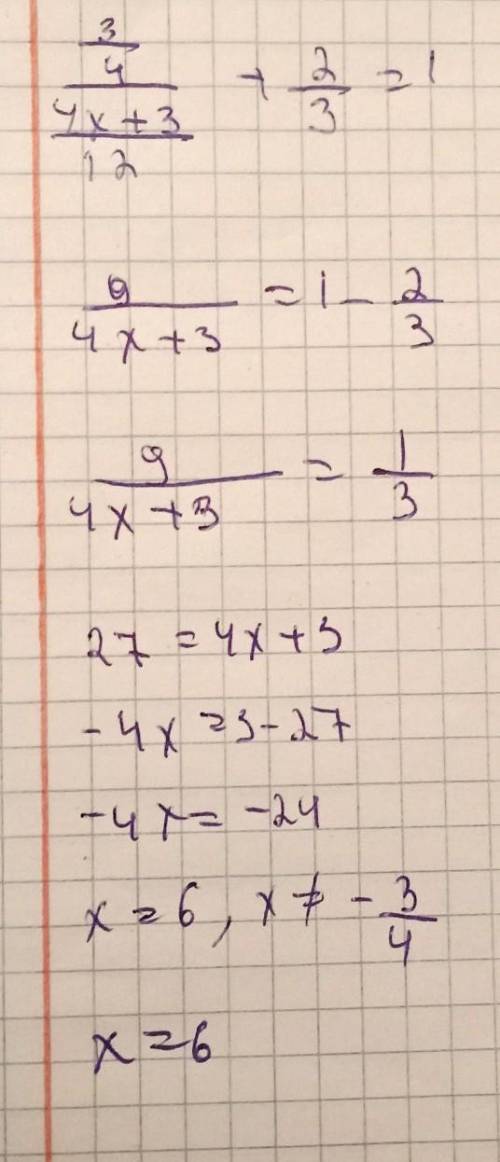 3/4 / (4x+3)/12 + 2/3 = 1
9/(4x+3) = 1 - 2/3
9/(4x+3) = 1/3
27 = 4x+3
-4x = 3-27
-4x = -24
x = 6, x ≠ - 3/4
x = 6